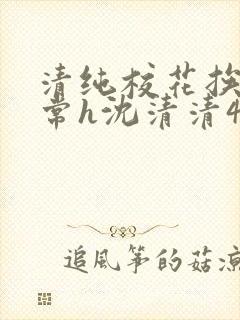 清纯校花挨
常h沈清清4
追风筝的菇凉